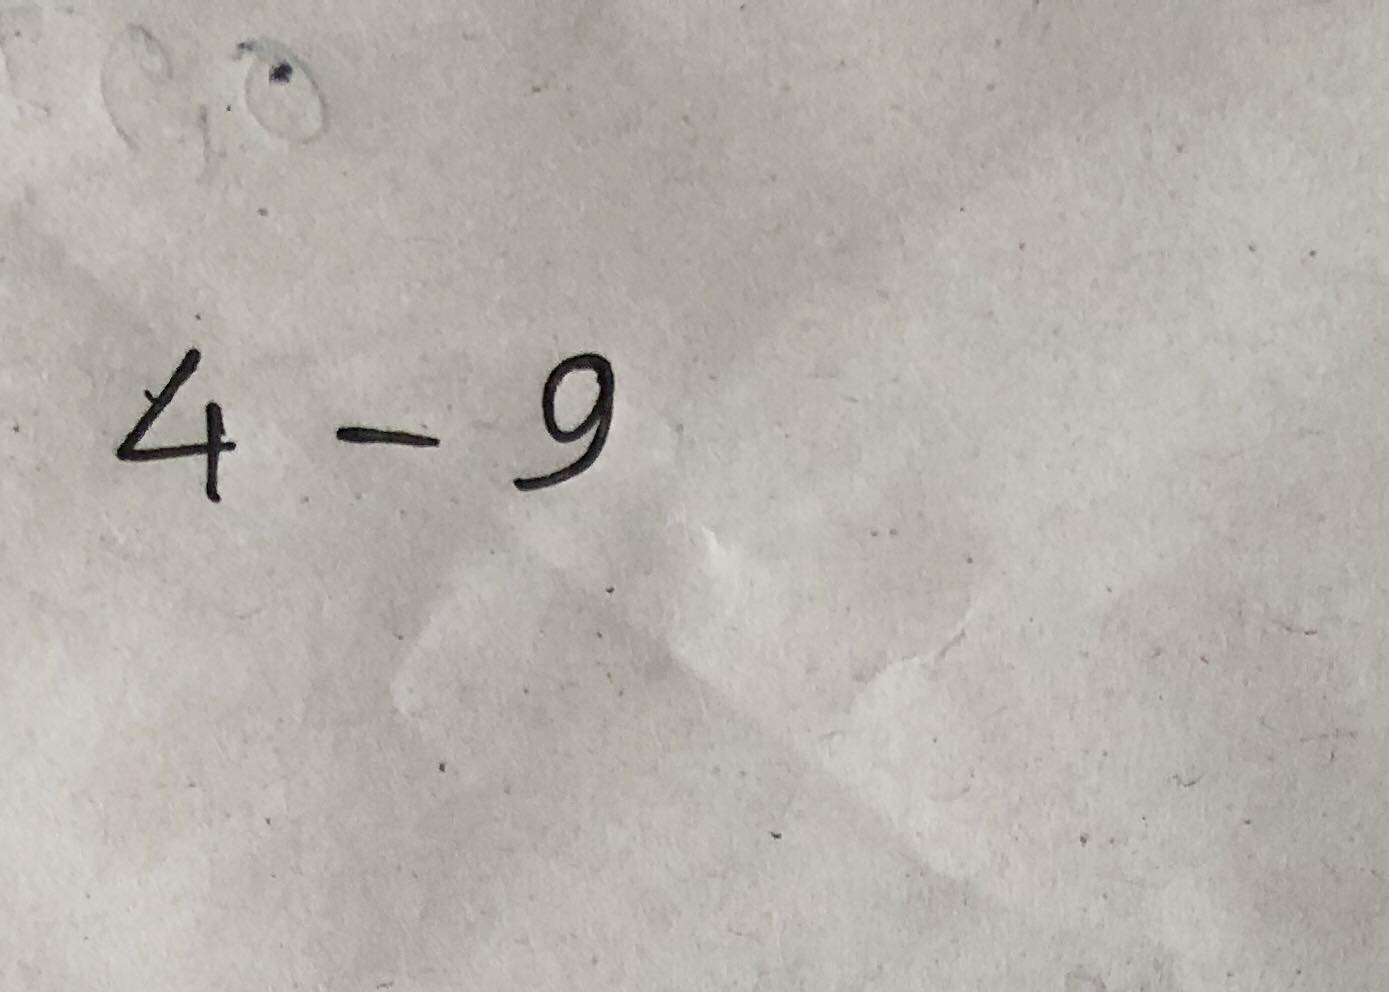 4 - 9